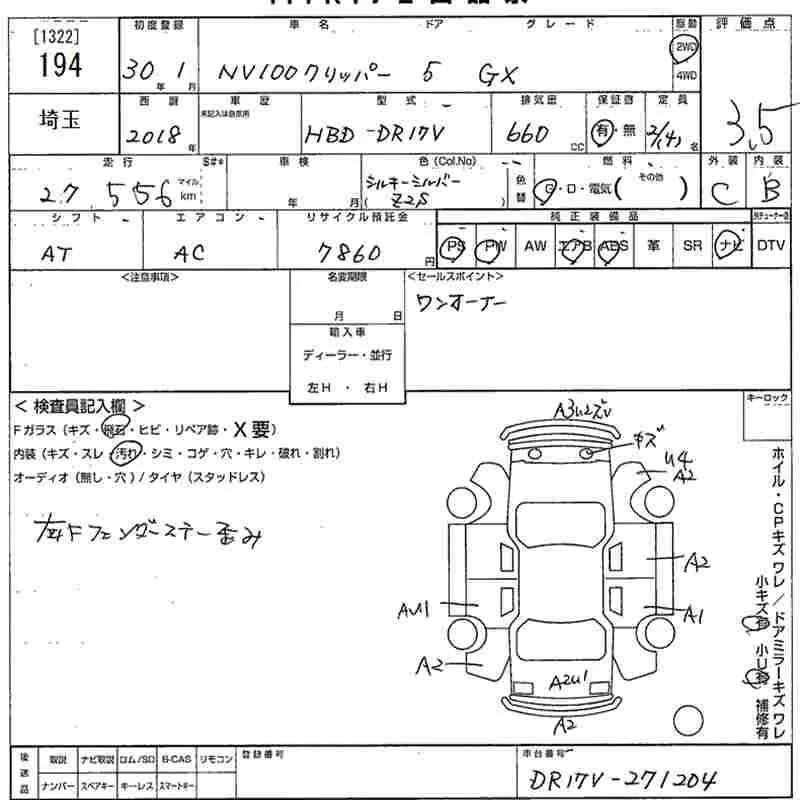 [1322]
194
初度登録 車名 ドア グレード 駆動 評価点
30年 1月 NV100クリッパー 5 GX 2WD 4WD
3.5
埼玉
西暦 車歴 型式 排気量 保証書 定員
未記入は自家用
2018年 HBD-DR17V 660cc 有・無 2/(4)名
走行 S#* 車検 色(Col.No) 燃料 外装 内装
27,556 マイル km 年 月 シルキーシルバー ( Z2S ) 色替 G・D・電気( その他 ) C B
シフト エアコン リサイクル預託金 純正装備品
AT AC 7860円 PS PW AW エアB ABS 革 SR ナビ DTV
<注意事項> 名変期限 <セールスポイント>
月 日
ワンオーナー
輸入車
ディーラー・並行
左H ・ 右H
<検査員記入欄> キーロック
Fガラス(キズ・飛石・ヒビ・リペア跡・X要)
内装(キズ・スレ・汚れ・シミ・コゲ・穴・キレ・破れ・割れ)
オーディオ(無し・穴)/タイヤ(スタッドレス)
キズ
U4
A2
Fフェンダーステー歪み
A2
AU1 A1
A2
A2U1
A2
ホイル・CPキズワレ/ドアミラーキズワレ
小キズ有 小U有 補修有
後送品 取説 ナビ取説 ロム/SD B-CAS リモコン 登録番号 車台番号
ナンバー スペアキー キーレス スマートキー DR17V-271204